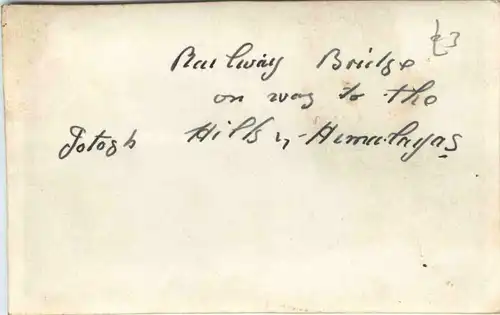 Railway Bridge
on way to the
Hills Himalayas